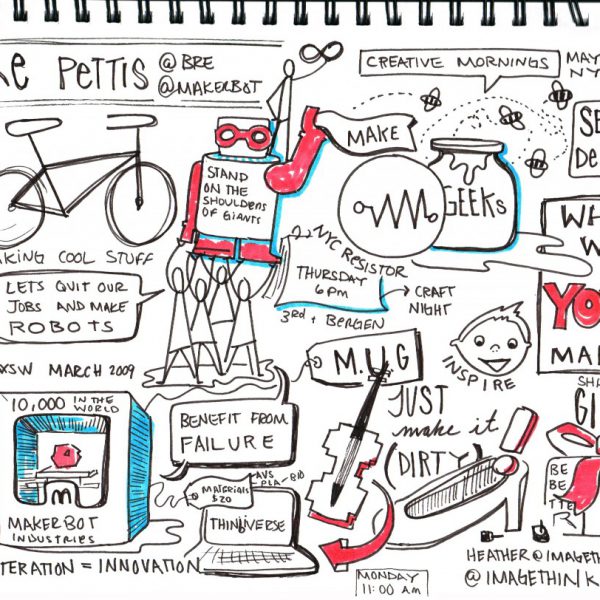 PETTIS
@ BRE
@MAKERBOT
CREATIVE MORNINGS
MAY
NY
MAKE
GEEKS
SE
DE
STAND
ON THE
SHOULDERS
OF GIANTS
KING COOL STUFF
LETS QUIT OUR
JOBS AND MAKE
ROBOTS
NYC RESISTOR
THURSDAY
6PM
3rd + BERGEN
CRAFT
NIGHT
WH
W
YO
MA
XSW MARCH 2009
M.U.G
INSPIRE
10,000 IN THE
WORLD
MAKERBOT
INDUSTRIES
BENEFIT FROM
FAILURE
JUST
make it
(DIRTY)
SH
GI
BE
BE
TTER
MATERIALS
$20
THINGIVERSE
ITERATION = INNOVATION
MONDAY
11:00 AM
HEATHER@IMAGETH
@IMAGETHINK